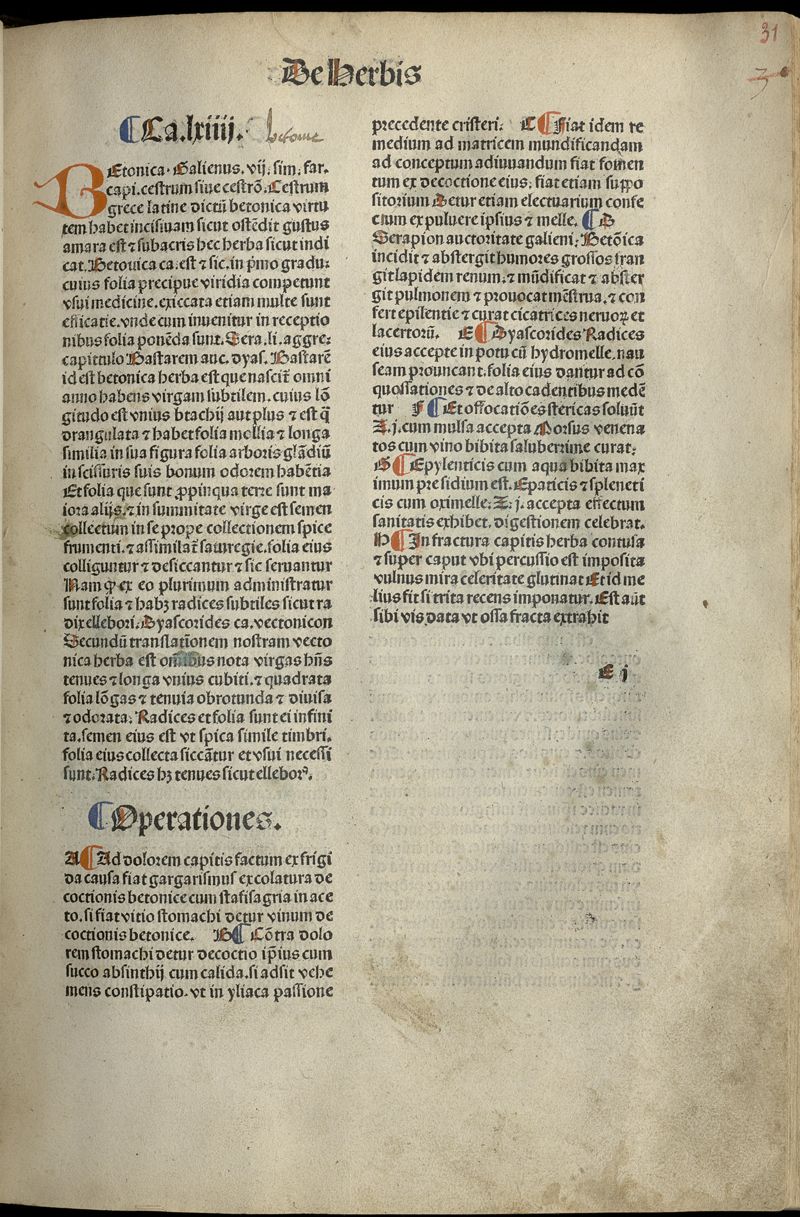 31
3
De Herbis
¶ Ca.lxiiij.
BEtonica. Galienus. vij. sim. far.
capi. cestrum siue cestrō. Cestrum
grece latine dictū betonica virtu
tem habet incisiuam sicut ostēdit gustus
amara est ⁊ subacris hec herba sicut indi
cat. Betonica ca. est ⁊ sic. in p̄mo gradu.
cuius folia precipue viridia competunt
vsui medicine. exiccata etiam multe sunt
efficatie. vnde cum inuenitur in receptio
nibus folia ponēda sunt. Sera. li. aggre.
capitulo Bastarem auc. dyas. Bastarē
id est betonica herba est que nascit̄ omni
anno habens virgam subtilem. cuius lō
gitudo est vnius btachij aut plus ⁊ est q̄
drangulata ⁊ habet folia mollia ⁊ longa
similia in sua figura folia arboris glādiū
in scissuris suis bonum odorem habētia
Et folia que sunt ꝓpinqua terre sunt ma
iora alijs. ⁊ in summitate virge est semen
collectum in se prope collectionem spice
frumenti. ⁊ assimilat̄ saturegie. folia eius
colliguntur ⁊ desiccantur ⁊ sic seruantur
Nam ꝙ ex eo plurimum administratur
sunt folia ⁊ habꝫ radices subtiles sicut ra
dix ellebori. Dyascorides ca. vectonicon
Secundū translatiōnem nostram vecto
nica herba est omībus nota virgas hn̄s
tenues ⁊ longa vnius cubiti. ⁊ quadrata
folia lōgas ⁊ tenuia obrotunda ⁊ diuisa
⁊ odorata. Radices et folia sunt ei infini
ta. semen eius est vt spica simile timbri.
folia eius collecta siccātur et vsui necessi
sunt. Radices hꝫ tenues sicut elleborꝰ.
¶ Operationes.
A ¶ Ad dolorem capitis factum ex frigi
da causa fiat gargarismus ex colatura de
coctionis betonice cum stafisagria in ace
to. si fiat vitio stomachi detur vinum de
coctionis betonice. B ¶ Cōtra dolo
rem stomachi detur decoctio ip̄ius cum
succo absinthij cum calida. si adsit vehe
mens constipatio. vt in yliaca passione
precedente cristeri. C ¶ Fiat idem re
medium ad matricem mundificandam
ad conceptum adiuuandum fiat fomen
tum ex decoctione eius. fiat etiam suppo
sitorium Detur etiam electuarium confe
ctum ex puluere ipsius ⁊ melle. ¶ D
Serapion auctoritate galieni. Betōica
incidit ⁊ abstergit humores grossos fran
git lapidem renum. ⁊ mūdificat ⁊ abster
git pulmonem ⁊ prouocat mēstrua. ⁊ con
fert epilentie ⁊ curat cicatrices neruoꝝ et
lacertorū. E ¶ Dyascorides Radices
eius accepte in potu cū hydromelle. nau
seam prouncant. folia eius dantur ad cō
quossationes ⁊ de alto cadentibus medē
tur F ¶ Et offocatiōes stericas soluūt
Z. j. cum mulsa accepta Morsus venena
tos cum vino bibita saluberrime curat.
G ¶ Epylenticis cum aqua bibita max
imum presidium est. Epaticis ⁊ spleneti
cis cum oximelle. Z. j. accepta effectum
sanitatis exhibet. digestionem celebrat.
H ¶ In fractura capitis herba contusa
⁊ super caput vbi percussio est imposita
vulnus mira celeritate glutinat Et id me
lius fit si trita recens imponatur. Est aūt
sibi vis data vt ossa fracta extrahit
E j